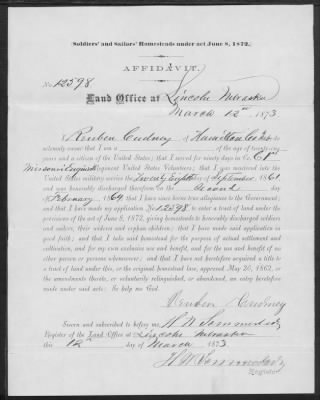 Soldiers' and Sailors' Homesteads under act June 8, 1872.
AFFIDAVIT.
No. 12598
Land Office at Lincoln Nebraska
March 12th 1873
I Reuben Cudney of Hamilton Co Neb do
solemnly swear that I am a of the age of twenty-one
years and a citizen of the United States; that I served for ninety days in Co. C 1st
Missouri Regiment United States Volunteers; that I was mustered into the
United States military service the Twenty Eighth of September, 1861
and was honorably discharged therefrom on the Second day
of February 1864; that I have since borne true allegiance to the Government; and
that I have made my application No. 12598 to enter a tract of land under the
provisions of the act of June 8, 1872, giving homesteads to honorably discharged soldiers
and sailors, their widows and orphan children; that I have made said application in
good faith; and that I take said homestead for the purpose of actual settlement and
cultivation, and for my own exclusive use and benefit, and for the use and benefit of no
other person or persons whomsoever; and that I have not heretofore acquired a title to
a tract of land under this, or the original homestead law, approved May 20, 1862, or
the amendments thereto, or voluntarily relinquished, or abandoned, an entry heretofore
made under said acts: So help me God.
Reuben Cudney
Sworn and subscribed to before me,
Register of the Land Office at Lincoln Nebraska
this 12 day of March 1873
Register